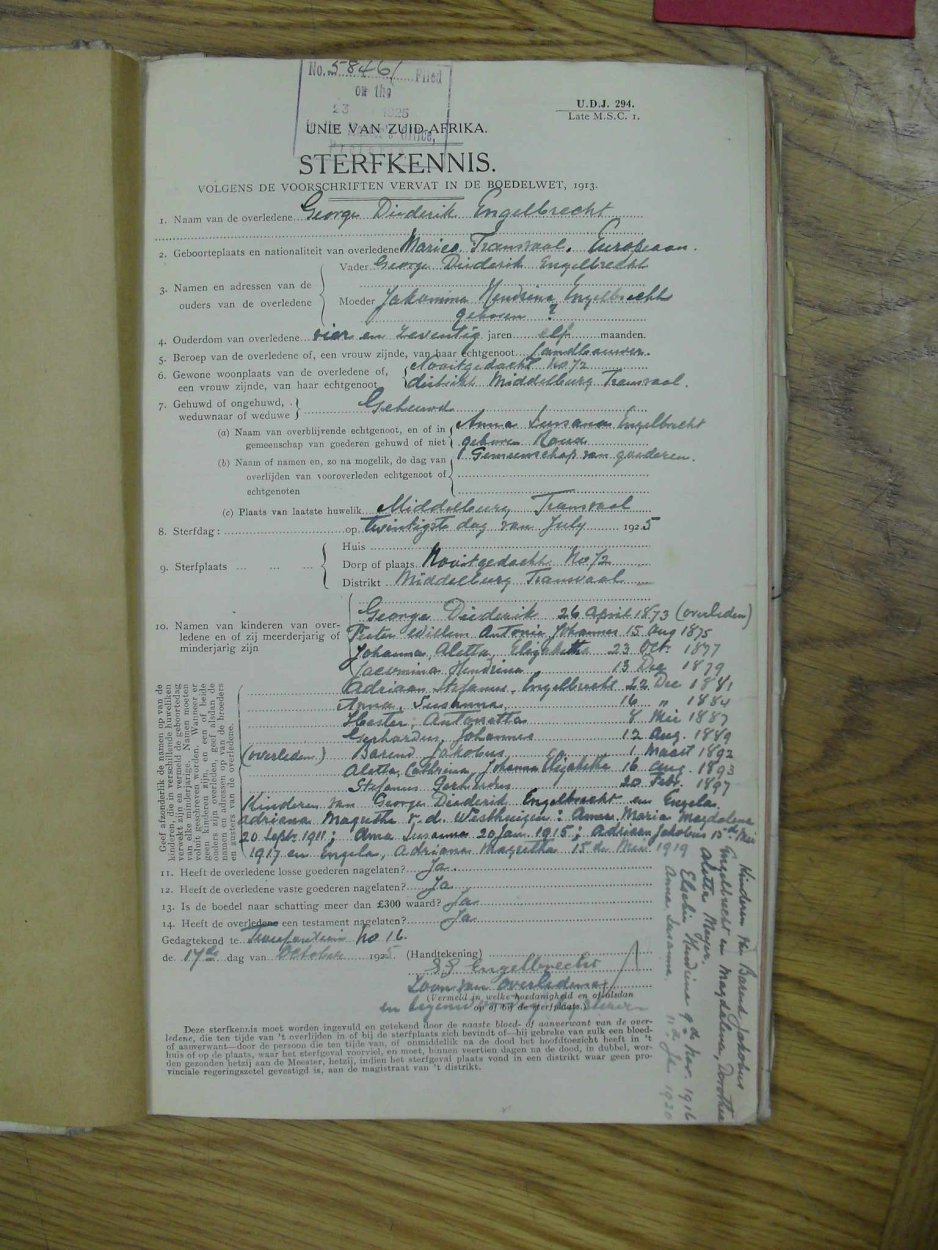 No. 58461 Filed
on the
23 1925
U.D.J. 294.
Late M.S.C. 1.
UNIE VAN ZUID-AFRIKA.
STERFKENNIS.
VOLGENS DE VOORSCHRIFTEN VERVAT IN DE BOEDELWET, 1913.
1. Naam van de overledene George Diederik Engelbrecht
2. Geboorteplaats en nationaliteit van overledene Marico Transvaal. Europeaan.
3. Namen en adressen van de ouders van de overledene
Vader George Diederik Engelbrecht
Moeder Jakomina Hendrina Engelbrecht
geboren ?
4. Ouderdom van overledene vier en zeventig jaren elf maanden.
5. Beroep van de overledene of, een vrouw zijnde, van haar echtgenoot Landbouwer.
6. Gewone woonplaats van de overledene of, een vrouw zijnde, van haar echtgenoot
Nooitgedacht No 72
distrikt Middelburg Transvaal.
7. Gehuwd of ongehuwd, weduwnaar of weduwe Gehuwd
(a) Naam van overblijvende echtgenoot, en of in gemeenschap van goederen gehuwd of niet
Anna Susana Engelbrecht
geboren
Gemeenschap van goederen.
(b) Naam of namen en, zo na mogelik, de dag van overlijden van vooroverleden echtgenoot of echtgenoten
(c) Plaats van laatste huwelik Middelburg Transvaal
8. Sterfdag : op twintigste dag van July 1925
9. Sterfplaats
Huis
Dorp of plaats Nooitgedacht No 72
Distrikt Middelburg Transvaal
10. Namen van kinderen van overledene en of zij meerderjarig of minderjarig zijn
George Diederik 26 April 1873 (overleden)
Pieter Willem Antonie Johannes 15 Aug 1875
Johanna, Aletta, Elizabetha 23 Oct. 1877
Jacomina Hendrina 13 Dec 1879
Adriaan Stefanus Engelbrecht 22 Dec 1881
Anna, Susanna 16 " 1884
Hester, Antonetta 8 Mei 1887
Gerhardus, Johannes 12 Aug. 1889
(overleden) Barend Jakobus 1 Maart 1892
Aletta, Cathrina, Johanna Elizabetha 16 Aug 1893
Stefanus Gerhardus 20 Feb. 1897
Geef afzonderlik de namen op van de kinderen, die in verschillende huweliken verwekt zijn en vermeld de geboortedag van elke minderjarige. Namen moeten voluit geschreven worden. Wanneer er geen kinderen zijn, en een of beide ouders zijn overleden, geef alsdan de namen en adressen op van de broeders en zusters van de overledene.
Kinderen van George Diederik Engelbrecht en Engela
Adriana Magretha v. d. Westhuizen : Anna Maria Magdalena
20 Sept. 1911; Anna Susanna 20 Jan 1915; Adriaan Jakobus 15de Mei
1917 en Engela, Adriana Magretha 15 de Mei 1919
Kinderen van Barend Jakobus
Engelbrecht en Magdalena, Dorothea
Aletta Meyer.
Hendrina 9de Nov. 1916
Anna Susanna 1920
11. Heeft de overledene losse goederen nagelaten? Ja.
12. Heeft de overledene vaste goederen nagelaten? Ja
13. Is de boedel naar schatting meer dan £300 waard? Ja
14. Heeft de overledene een testament nagelaten? Ja
Gedagtekend te Tweefontein No 16.
de 17de dag van October 1925. (Handtekening)
Engelbrecht
Zoon van Overledene
(Vermeld in welke hoedanigheid en of alsdan op of bij de sterfplaats.)
Deze sterfkennis moet worden ingevuld en getekend door de naaste bloed- of aanverwant van de overledene, die ten tijde van 't overlijden in of bij de sterfplaats zich bevindt of—bij gebreke van zulk een bloed- of aanverwant—door de persoon die ten tijde van, of onmiddellik na de dood het hoofdtoezicht heeft in 't huis of op de plaats, waar het sterfgeval voorviel, en moet, binnen veertien dagen na de dood, in dubbel, worden gezonden hetzij aan de Meester, hetzij, indien het sterfgeval plaats vond in een distrikt waar geen provinciale regeringszetel gevestigd is, aan de magistraat van 't distrikt.